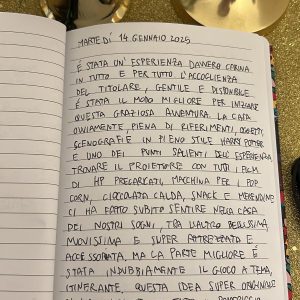 MARTEDÍ 14 GENNAIO 2025
É STATA UN'ESPERIENZA DAVVERO CARINA
IN TUTTO E PER TUTTO. L'ACCOGLIENZA
DEL TITOLARE, GENTILE E DISPONIBILE
É STATA IL MODO MIGLIORE PER INIZIARE
QUESTA GRAZIOSA AVVENTURA. LA CASA
OVVIAMENTE, PIENA DI RIFERIMENTI, OGGETTI,
SCENOGRAFIE IN PIENO STILE HARRY POTTER
E UNO DEI PUNTI SALIENTI DELL'ESPERIENZA
TROVARE IL PROIETTORE CON TUTTI I FILM
DI HP PRECARICATI, MACCHINA PER I POP
CORN, CIOCCOLATA CALDA, SNACK E MERENDINE
CI HA FATTO SUBITO SENTIRE NELLA CASA
DEI NOSTRI SOGNI, TRA L'ALTRO BELLISSIMA,
NUOVISSIMA E SUPER ATTREZZATA E
ACCESSORIATA, MA LA PARTE MIGLIORE É
STATA INDUBBIAMENTE IL GIOCO A TEMA,
ITINERANTE, QUESTA IDEA SUPER ORIGINALE